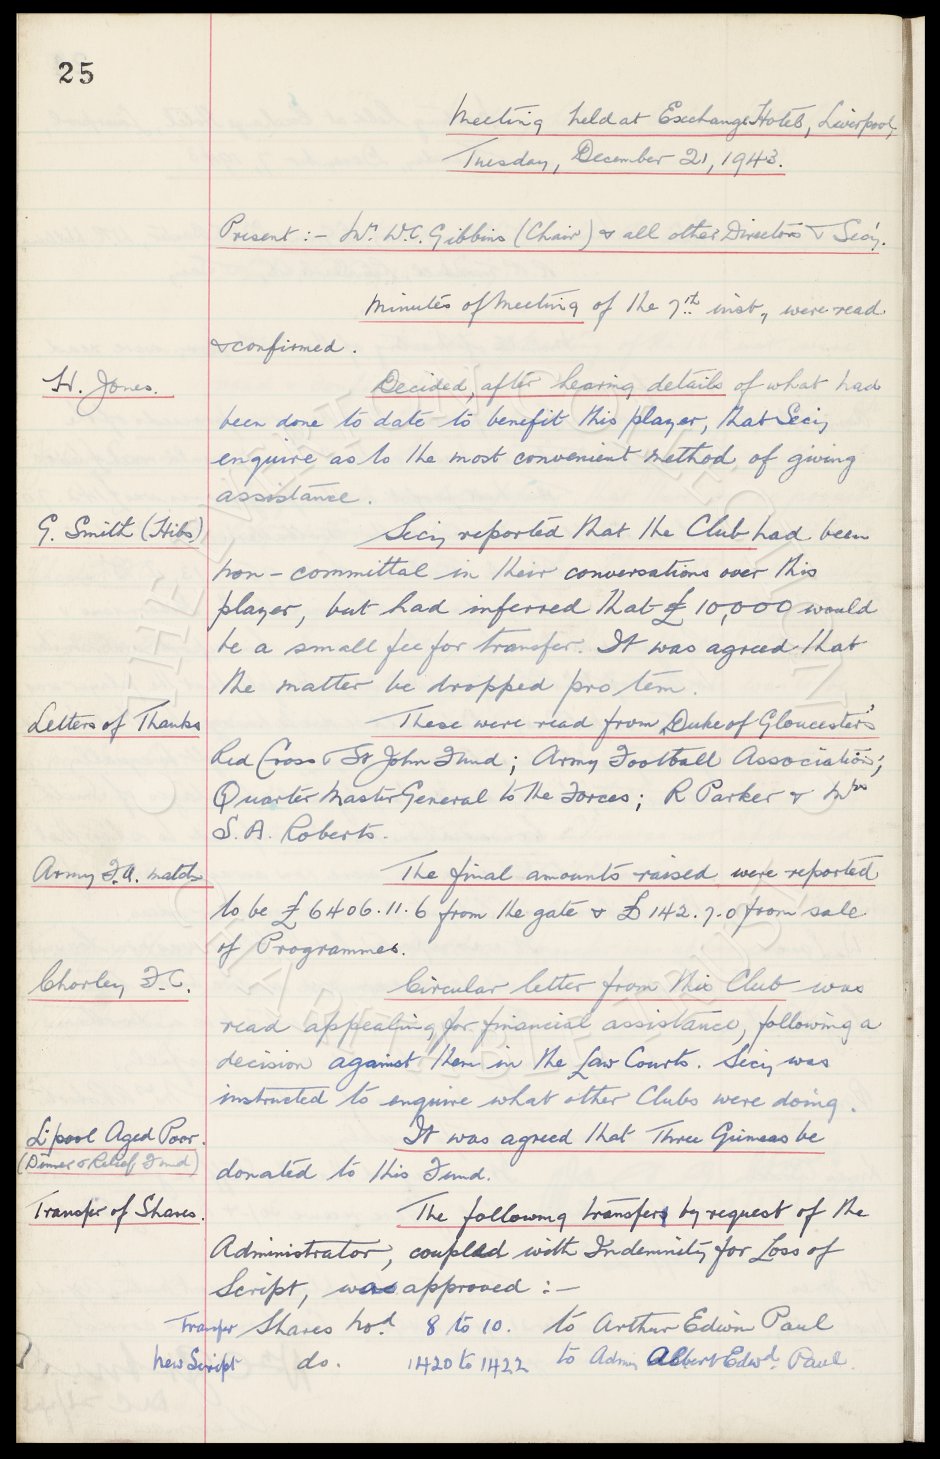 25
Meeting held at Exchange Hotel, Liverpool,
Tuesday, December 21, 1943.
Present :- Mr. W.C. Gibbins (Chair) & all other Directors & Secy.
Minutes of Meeting of the 7th inst, were read
& confirmed.
H. Jones. Decided, after hearing details of what had
been done to date to benefit this player, that Secy
enquire as to the most convenient method of giving
assistance.
G. Smith (Hibs) Secy reported that the Club had been
non-committal in their conversations over this
player, but had inferred that £10,000 would
be a small fee for transfer. It was agreed that
the matter be dropped pro tem.
Letters of Thanks These were read from Duke of Gloucester's
Red Cross & St John Fund; Army Football Association;
Quarter Master General to the Forces; R Parker & Mrs
S. A. Roberts.
Army F.A. match The final amounts raised were reported
to be £6406.11.6 from the gate & £142.7.0 from sale
of Programmes.
Chorley F.C. Circular letter from this Club was
read appealing for financial assistance, following a
decision against them in the Law Courts. Secy was
instructed to enquire what other Clubs were doing.
L'pool Aged Poor. It was agreed that Three Guineas be
(Dinner & Relief Fund) donated to this Fund.
Transfer of Shares. The following transfers by request of the
Administrator, coupled with Indemnity for Loss of
Script, was approved :-
Transfer Shares No.d 8 to 10. to Arthur Edwin Paul
New Script do. 1420 to 1422 to Admin Albert Edwd. Paul.